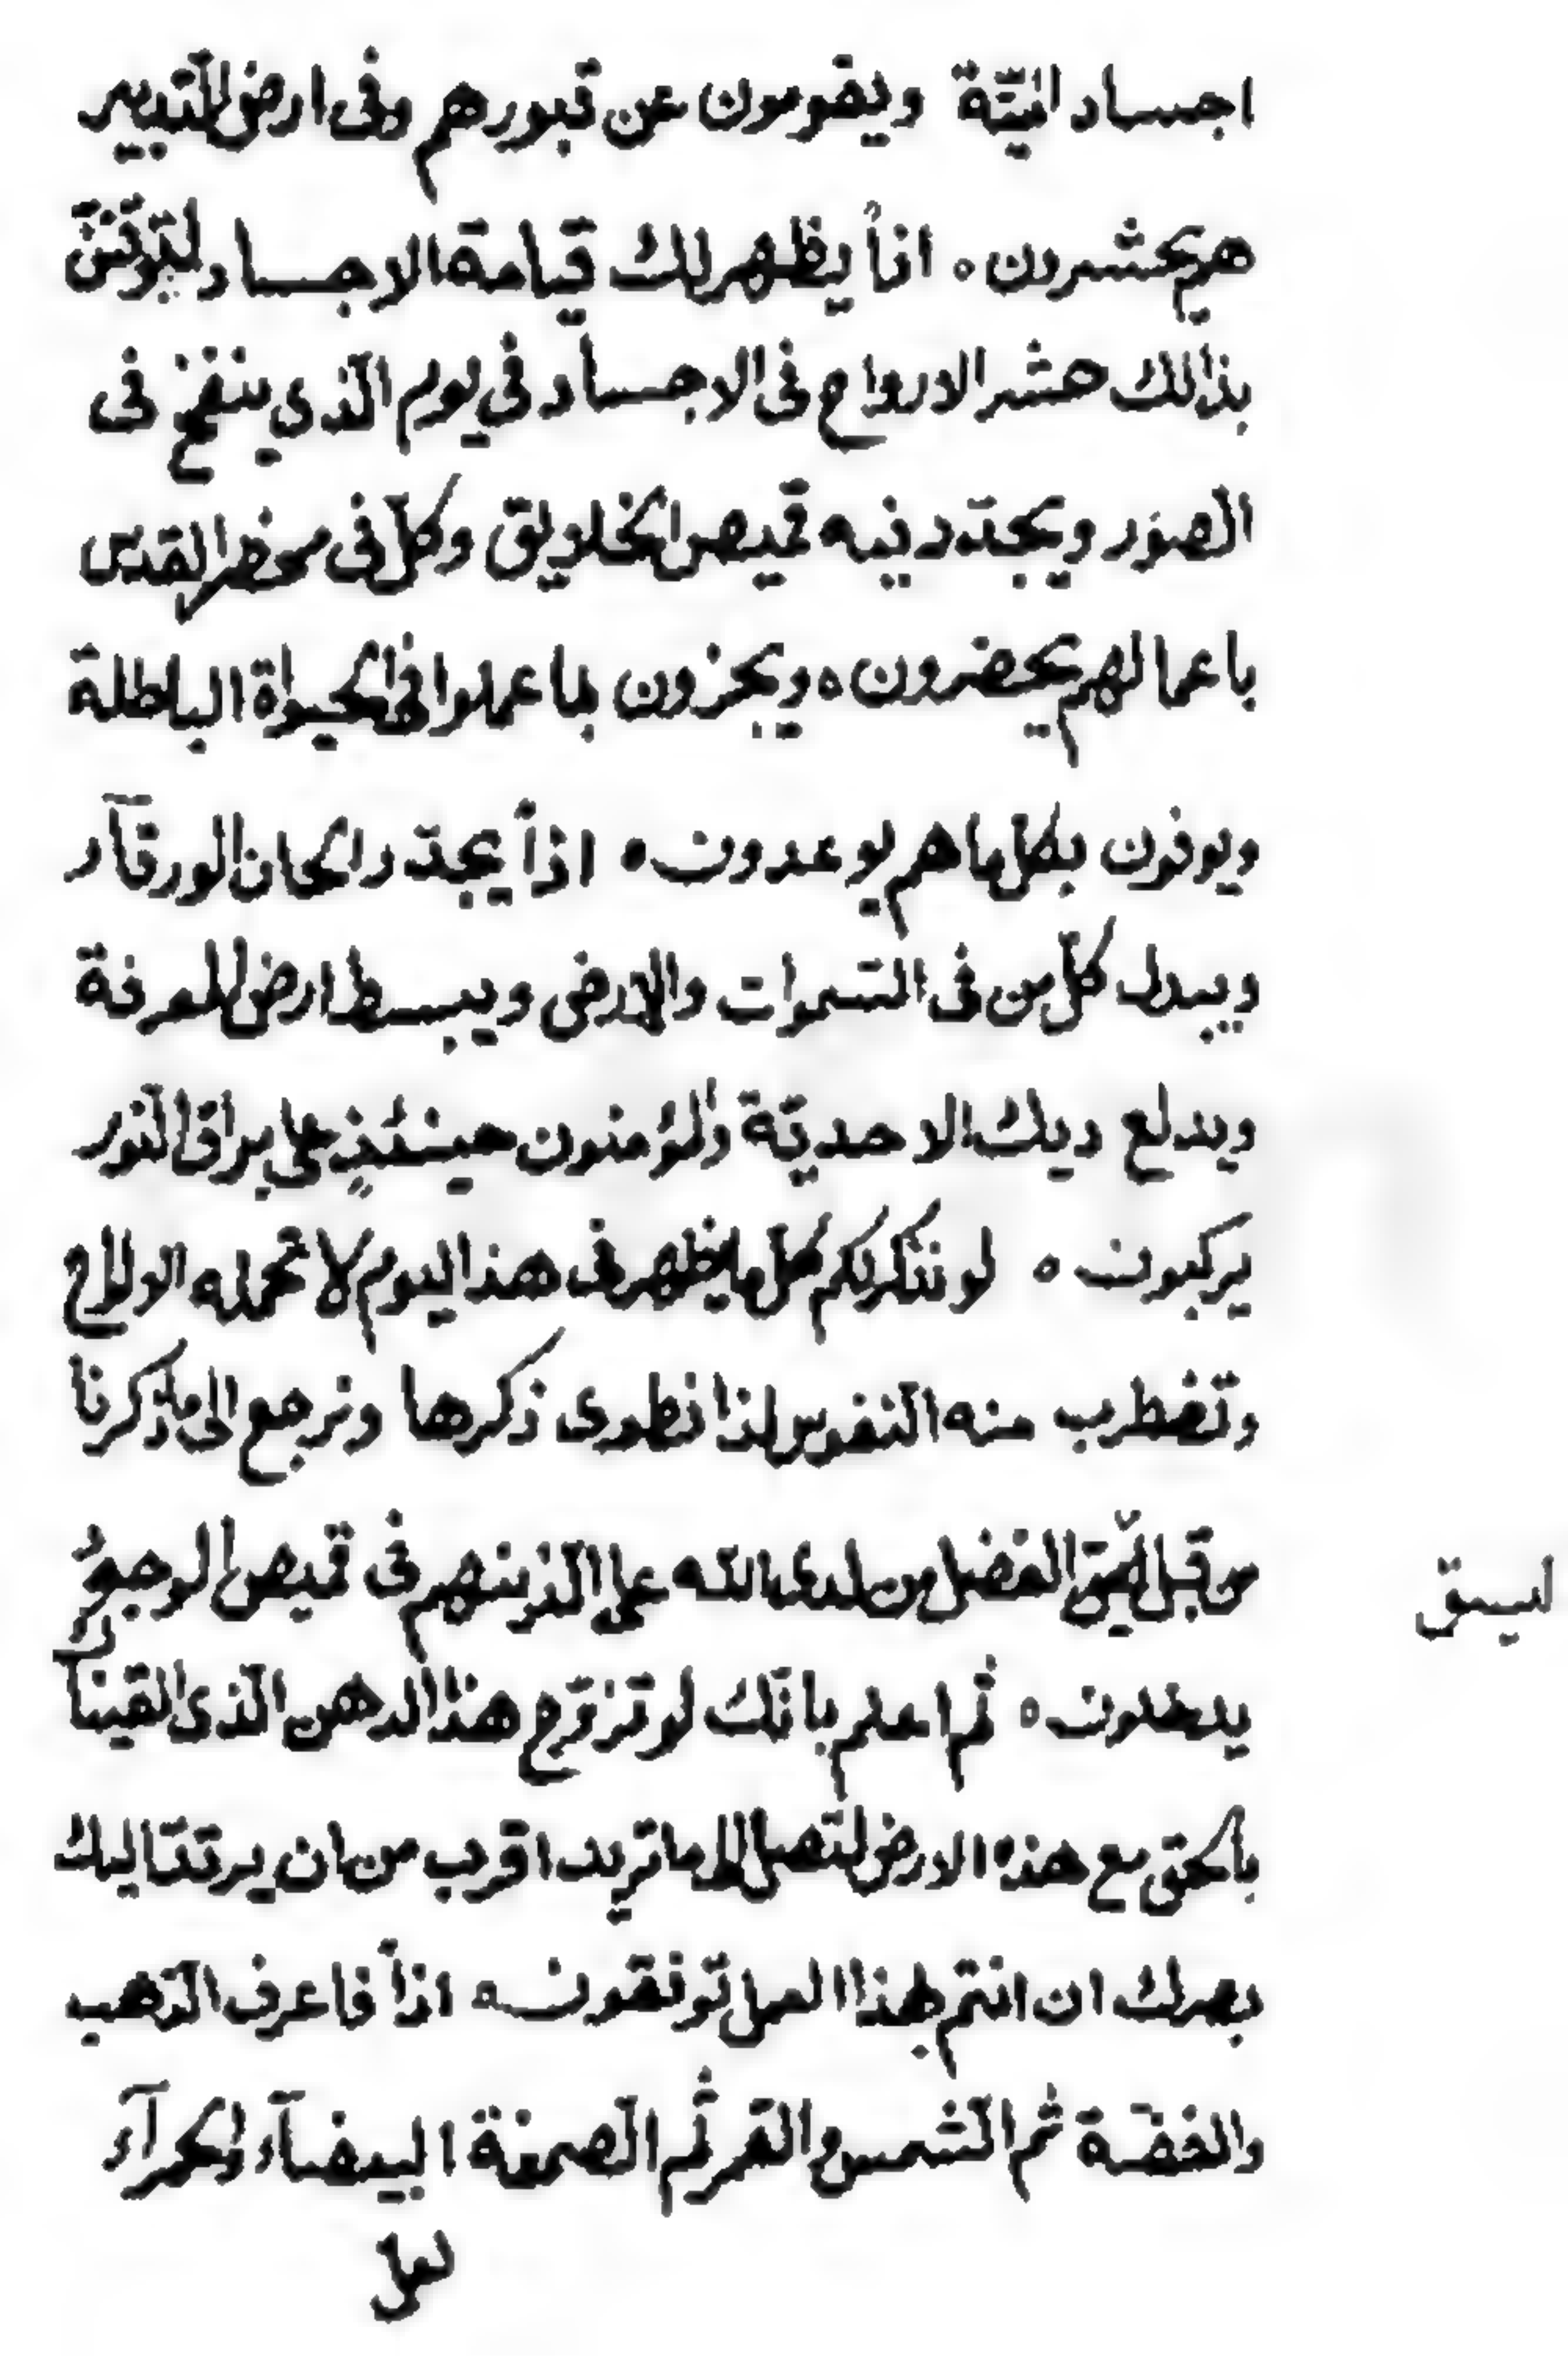 اجساد الميّتة ويقومون عن قبورهم وفى ارض التّدبير
هم يحشرون ه اذاً يظهر لك قيامة الاجساد لتوقننّ
بذالك حشر الارواح فى الاجساد فى يوم الّذى ينفخ فى
الصّور ويجدّد فيه قميص الخلايق وكلّ فى محضر القدس
باعمالهم يحضرون ه ويجزون بما عملوا فى الحيواة الباطلة
ويوفون بكلّ ما هم يوعدون ه اذاً يجدّد الحان الورقآء
ويبدل كلّ من فى السّموات والارض ويبسط ارض المعرفة
ويدلع ديك الاحديّة والمؤمنون حينئذٍ على براق النّور
يركبون ه لو نذكر لكم كلّ ما يظهر فى هذا اليوم لا تحمله الالواح
وتضطرب منه النّفوس لذا نطوى ذكرها ونرجع الى ما ذكرنا
من قبل ليبقى الفضل من لدى الله على الّذينهم فى قميص الوجود
ليبقى
يدخلون ه ثم اعلم بانّك لو تزوّج هذا الدهن الّذى القيناك
بالحق مع هذه الارض لتصل الى ما تريد اقرب من ان يرتدّ اليك
بصرك ان انتم بهذا العمل توفقون ه اذاً فاعرف الذّهب
والفضّة ثم الشّمس والقمر ثم الصمغة البيضآء والحمرآء
لعل